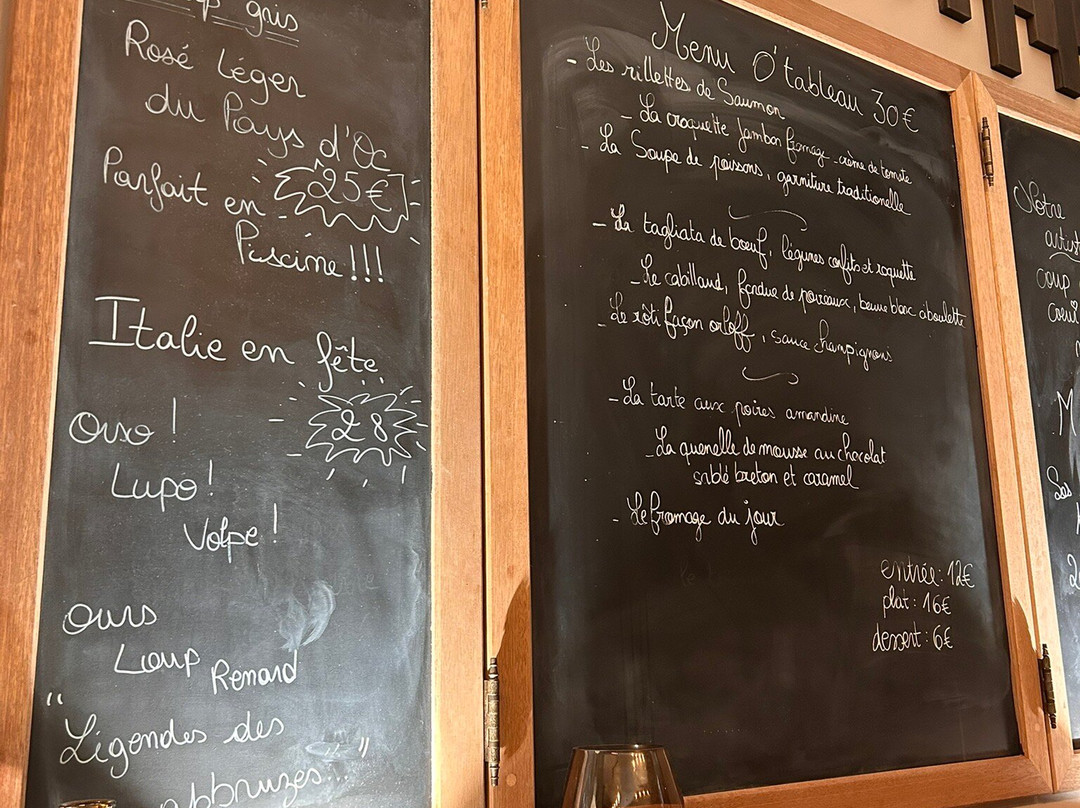 gris
Rosé Léger
du Pays d'Oc
25€
Parfait en
Piscine!!!
Italie en fête
28
Orso!
Lupo!
Volpe!
Ours
Loup Renard
"Légendes des
abbruzes..."
Menu O'tableau 30€
- Les rillettes de Saumon
- La croquette jambon fromage - crème de tomate
- La Soupe de poissons, garniture traditionelle
- La tagliata de boeuf, légumes confits et roquette
- Le cabillaud, fondue de poireaux, beurre blanc ciboulette
- Le rôti façon orloff, sauce champignons
- La tarte aux poires amandine
- La quenelle de mousse au chocolat
sablé breton et caramel
- Le fromage du jour
entrée: 12€
plat: 16€
dessert: 6€
Notre
coup